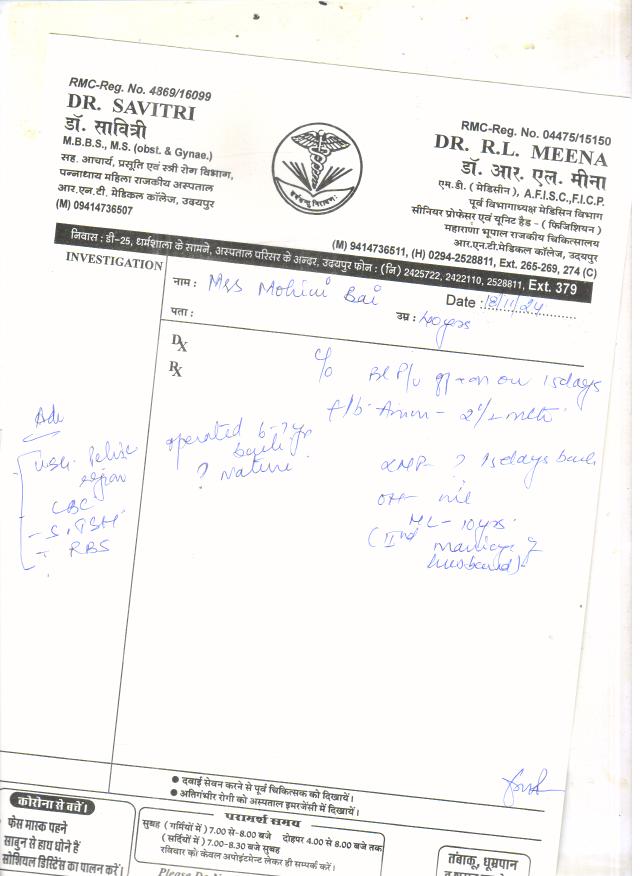 RMC-Reg. No. 4869/16099
DR. SAVITRI
डॉ. सावित्री
M.B.B.S., M.S. (obst. & Gynae.)
सह. आचार्य, प्रसूति एवं स्त्री रोग विभाग,
पन्नाधाय महिला राजकीय अस्पताल
आर.एन.टी. मेडिकल कॉलेज, उदयपुर
(M) 09414736507
RMC-Reg. No. 04475/15150
DR. R.L. MEENA
डॉ. आर. एल. मीना
एम.डी. ( मेडिसीन ), A.F.I.S.C.,F.I.C.P.
पूर्व विभागाध्यक्ष मेडिसिन विभाग
सीनियर प्रोफेसर एवं यूनिट हैड - ( फिजिशियन )
महाराणा भूपाल राजकीय चिकित्सालय
आर.एन.टी.मेडिकल कॉलेज, उदयपुर
(M) 9414736511, (H) 0294-2528811, Ext. 265-269, 274 (C)
निवास : डी-25, धर्मशाला के सामने, अस्पताल परिसर के अन्दर, उदयपुर फोन : (नि) 2425722, 2422110, 2528811, Ext. 379
INVESTIGATION
नाम : Mrs Mohini Bai
Date : 18/11/24
पता :
उम्र : 40yrs
Dx
Rx
c/o Bl P/v on 15days
f/b Amen - 2½ mth
operated 6-7 yr back
? nature
LMP - ? 15days back
OH nil
ML - 10yrs
(IInd marriage of
husband)
Adv
USG. Pelvic
region
CBC
- S.TSH
- RBS
● दवाई सेवन करने से पूर्व चिकित्सक को दिखायें।
● अतिगंभीर रोगी को अस्पताल इमरजेंसी में दिखायें।
कोरोना से बचें।
फेस मास्क पहने
साबुन से हाथ धोने हैं
सोशियल डिस्टेंस का पालन करें।
परामर्श समय
सुबह ( गर्मियों में ) 7.00 से-8.00 बजे दोहपर 4.00 से 8.00 बजे तक
( सर्दियों में ) 7.00-8.30 बजे सुबह
रविवार को केवल अपोइंटमेन्ट लेकर ही सम्पर्क करें।
तंबाकू, धूम्रपान